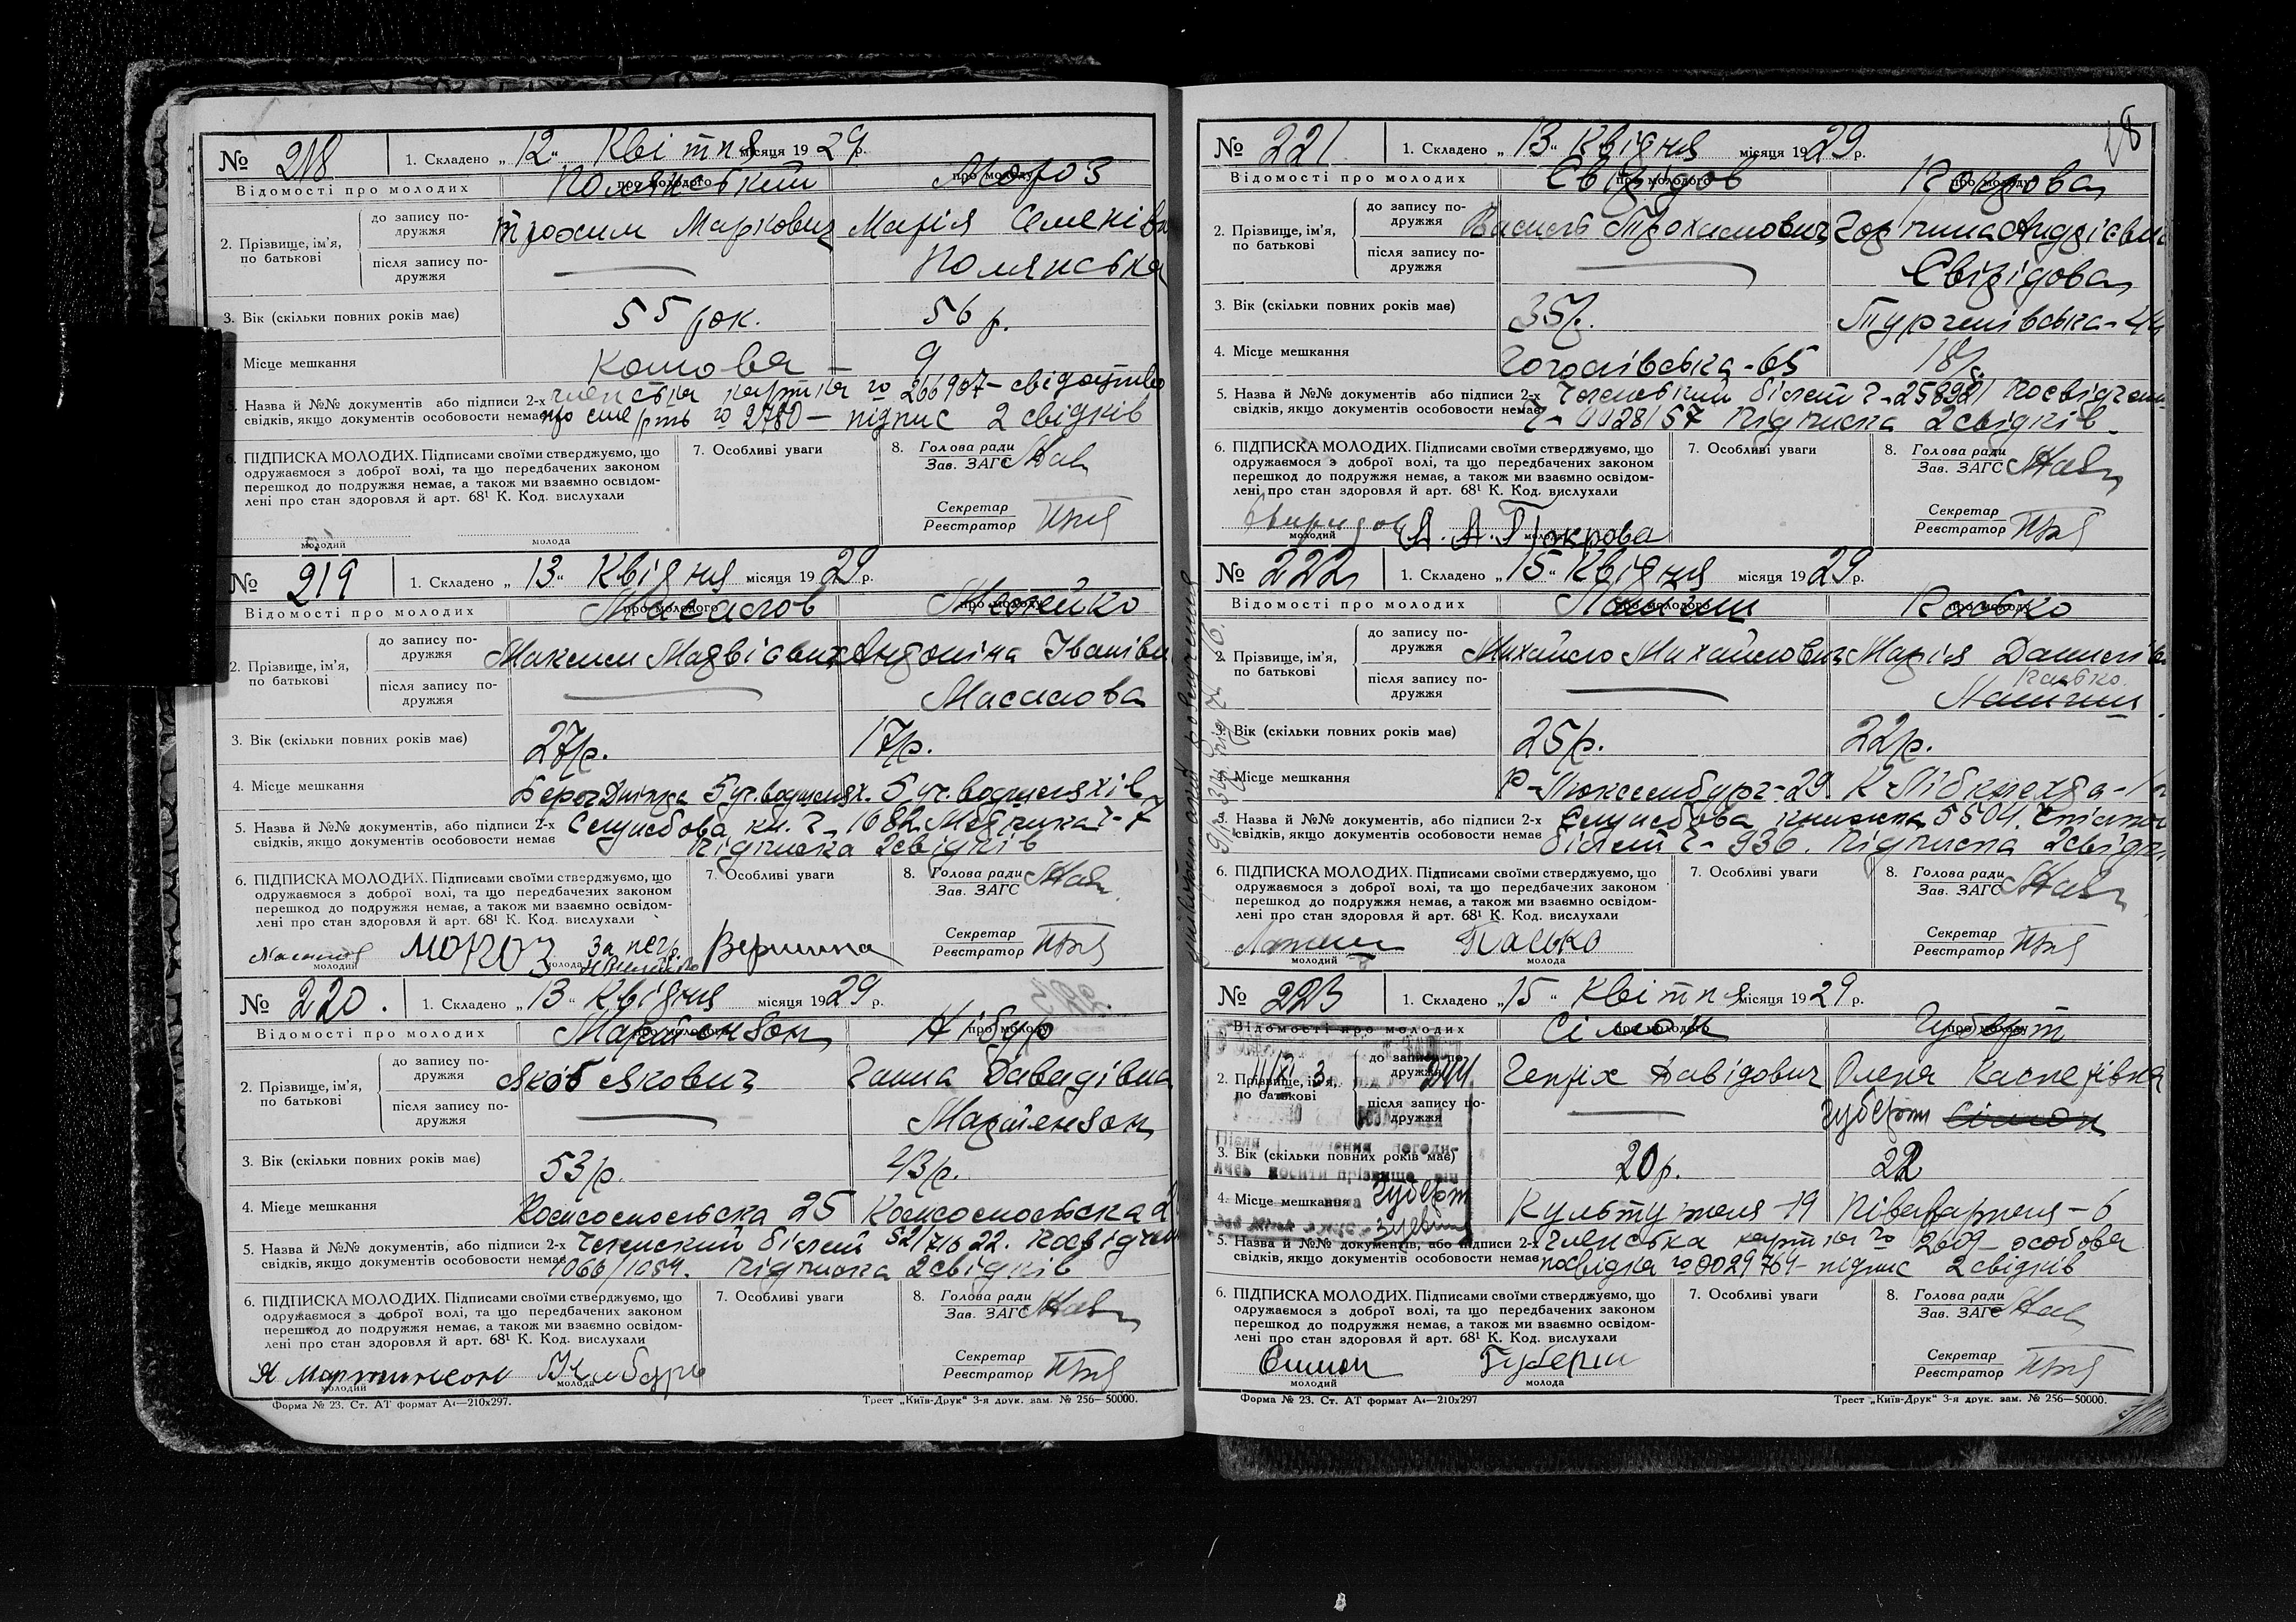 № 218 1. Складено „ 12 “ Квітня місяця 1929 р.
Відомості про молодих про молодого про молоду
Полянський Мороз
2. Прізвище, ім'я, по батькові
до запису подружжя Трохим Маркович Марія Семенівна
після запису подружжя — Полянська
3. Вік (скільки повних років має) 55 рок. 56 р.
4. Місце мешкання 9
5. Назва й №№ документів або підписи 2-х членська картка № 266907 – свідоцтво
свідків, якщо документів особовости немає про смерть № 2780 – підпис 2 свідків
6. ПІДПИСКА МОЛОДИХ. Підписами своїми стверджуємо, що
одружаємося з доброї волі, та що передбачених законом
перешкод до подружжя немає, а також ми взаємно освідом-
лені про стан здоровля й арт. 68¹ К. Код. вислухали
7. Особливі уваги
8. Голова ради
Зав. ЗАГС
Секретар
Реєстратор
молодий молода
№ 219 1. Складено „ 13 “ Квітня місяця 1929 р.
Відомості про молодих про молодого про молоду
Масалов
2. Прізвище, ім'я, по батькові
до запису подружжя Максим Матвієвич Антоніна Іванівн
після запису подружжя — Масалова
3. Вік (скільки повних років має) 27 р. 17 р.
4. Місце мешкання Берег Дніпра 5
5. Назва й №№ документів, або підписи 2-х Службова кн. ч – 1682. Метрика ч – 7
свідків, якщо документів особовости немає Підписка 2 свідків
6. ПІДПИСКА МОЛОДИХ. Підписами своїми стверджуємо, що
одружаємося з доброї волі, та що передбачених законом
перешкод до подружжя немає, а також ми взаємно освідом-
лені про стан здоровля й арт. 68¹ К. Код. вислухали
7. Особливі уваги
8. Голова ради
Зав. ЗАГС
Секретар
Реєстратор
молодий молода
№ 220. 1. Складено „ 13 “ Квітня місяця 1929 р.
Відомості про молодих про молодого про молоду
Мартензон Нібур
2. Прізвище, ім'я, по батькові
до запису подружжя Якоб Якович Ганна Давидівна
після запису подружжя — Мартензон
3. Вік (скільки повних років має) 53 р. 43 р.
4. Місце мешкання Комсомольська 25 Комсомольська
5. Назва й №№ документів, або підписи 2-х Членский білет 521716 22. Посвідчен
свідків, якщо документів особовости немає 1066/1054. Підписка 2 свідків
6. ПІДПИСКА МОЛОДИХ. Підписами своїми стверджуємо, що
одружаємося з доброї волі, та що передбачених законом
перешкод до подружжя немає, а також ми взаємно освідом-
лені про стан здоровля й арт. 68¹ К. Код. вислухали
7. Особливі уваги
8. Голова ради
Зав. ЗАГС
Секретар
Реєстратор
Я Мартинсон
молодий молода
Форма № 23. Ст. АТ формат А4—210х297. Трест „Київ-Друк“ 3-я друк. зам. № 256—50000.
№ 221 1. Складено „ 13 “ Квітня місяця 1929 р.
Відомості про молодих про молодого про молоду
Свірідов Покрова
2. Прізвище, ім'я, по батькові
до запису подружжя Василь Трохимович Горпина Андрієвн
після запису подружжя — Свірідова
3. Вік (скільки повних років має) 35 р. Тургенівська – 44
4. Місце мешкання Гоголівська – 65 18 р.
5. Назва й №№ документів або підписи 2-х Членський білет ч – 258921 Посвідчен
свідків, якщо документів особовости немає ч – 0028157 Підписка 2 свідків –
6. ПІДПИСКА МОЛОДИХ. Підписами своїми стверджуємо, що
одружаємося з доброї волі, та що передбачених законом
перешкод до подружжя немає, а також ми взаємно освідом-
лені про стан здоровля й арт. 68¹ К. Код. вислухали
7. Особливі уваги
8. Голова ради
Зав. ЗАГС
Секретар
Реєстратор
Свиридов А. Покрова
молодий молода
№ 222 1. Складено „ 15 “ Квітня місяця 1929 р.
Відомості про молодих про молодого про молоду
Пасько
2. Прізвище, ім'я, по батькові
до запису подружжя Михайло Михайлович Марія Данилів
після запису подружжя — Пасько.
3. Вік (скільки повних років має) 25 р. 22 р.
4. Місце мешкання Р – Люксембург – 29. К – Лібкнехта – 1
5. Назва й №№ документів, або підписи 2-х Службова книжка 5504.
свідків, якщо документів особовости немає білет ч – 936. Підписка 2 свідк
6. ПІДПИСКА МОЛОДИХ. Підписами своїми стверджуємо, що
одружаємося з доброї волі, та що передбачених законом
перешкод до подружжя немає, а також ми взаємно освідом-
лені про стан здоровля й арт. 68¹ К. Код. вислухали
7. Особливі уваги
8. Голова ради
Зав. ЗАГС
Секретар
Реєстратор
Пасько
молодий молода
№ 223 1. Складено „ 15 “ Квітня місяця 1929 р.
Відомості про молодих про молодого про молоду
Сімон Губерт
2. Прізвище, ім'я, по батькові
до запису подружжя Генріх Давідович Олена Касперівна
після запису подружжя — Губерт Сімон
3. Вік (скільки повних років має) 20 р. 22
4. Місце мешкання Губерт 19 6
5. Назва й №№ документів, або підписи 2-х членська картка № 2609 – особова
свідків, якщо документів особовости немає посвідка № 0029764 – підпис 2 свідків
6. ПІДПИСКА МОЛОДИХ. Підписами своїми стверджуємо, що
одружаємося з доброї волі, та що передбачених законом
перешкод до подружжя немає, а також ми взаємно освідом-
лені про стан здоровля й арт. 68¹ К. Код. вислухали
7. Особливі уваги
8. Голова ради
Зав. ЗАГС
Секретар
Реєстратор
Симон Губерт
молодий молода
Форма № 23. Ст. АТ формат А4—210х297 Трест „Київ-Друк“ 3-я друк. зам. № 256—50000.